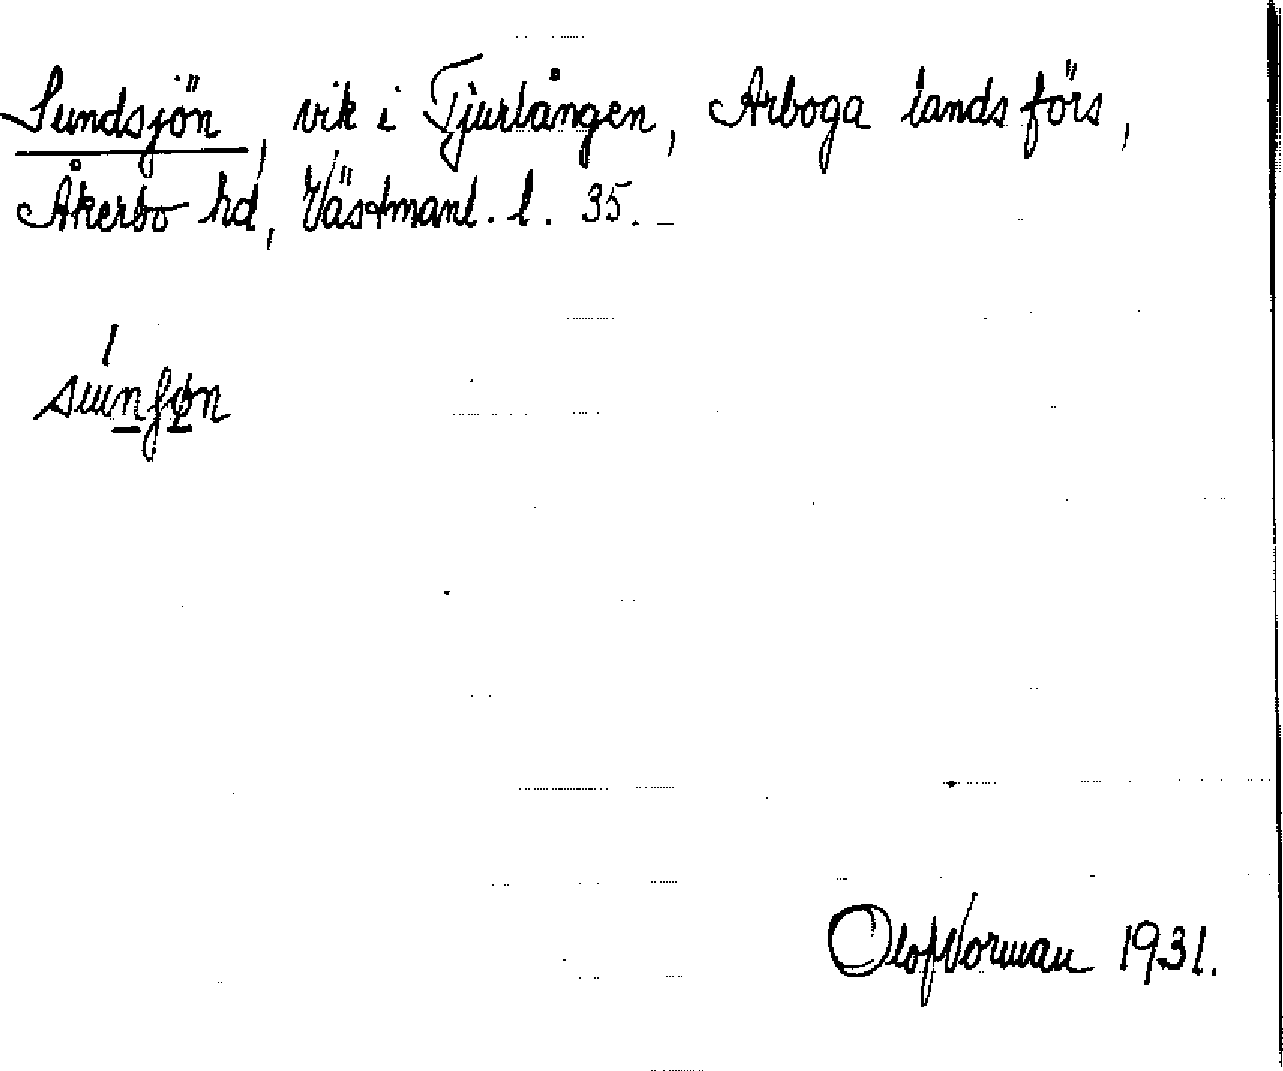 Sundsjön, vik i Tjurlången, Arboga lands förs,
Åkerbo hd, Västmanl. l. 35. –
Olof Norman 1931.